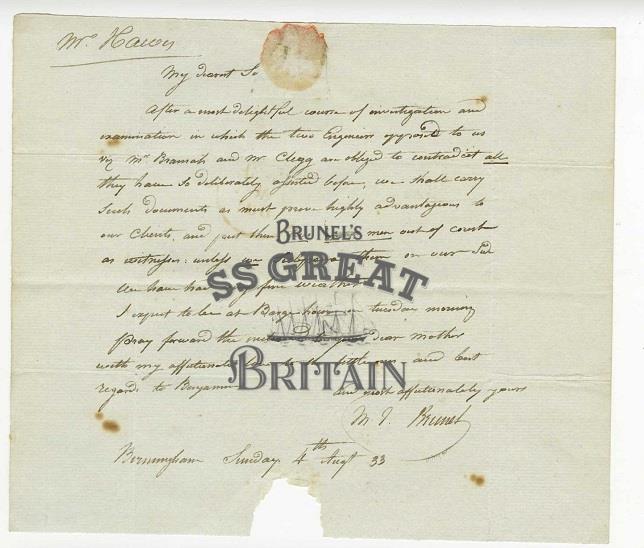 Mrs Hawes
My dearest So
After a most delightful course of investigation and
examination in which the two Engineers opposed to us
viz Mr Bramah and Mr Clegg are obliged to contradict all
they have so deliberately asserted before, we shall carry
such documents as must prove highly advantageous to
our Clients, and put these men out of court
as witnesses: unless we them on our Side
We have had fine weather
I expect to be at Barge house on tuesday morning
Pray forward the to your dear Mother
with my affectionate and best
regards to Benjamin
are most affectionately yours
M. I. Brunel
Birmingham Sunday 4th Augst 33
BRUNEL'S
SS GREAT
BRITAIN